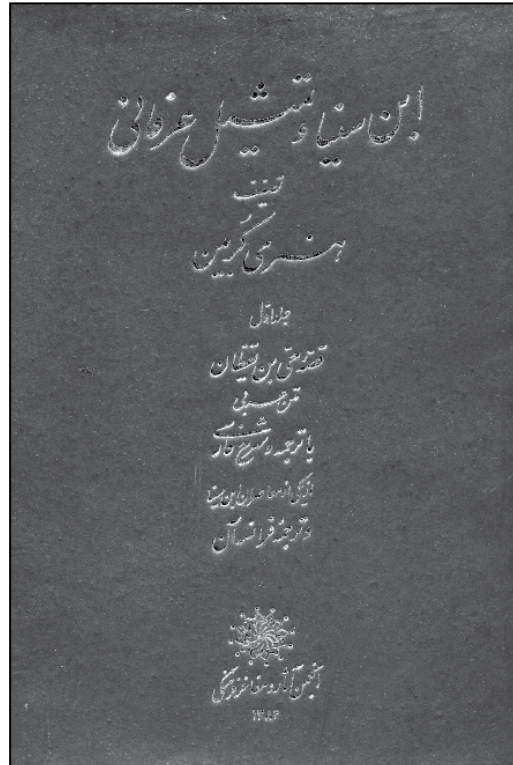 ابن سینا و تمثیل عرفانی
تصنیف
هنری کُربین
جلد اول
قصهٔ حیّ بن یقظان
متن عربی
با ترجمه و شرح فارسی
از یکی از معاصران ابن سینا
و ترجمهٔ فرانسهٔ آن
انجمن آثار و مفاخر فرهنگی